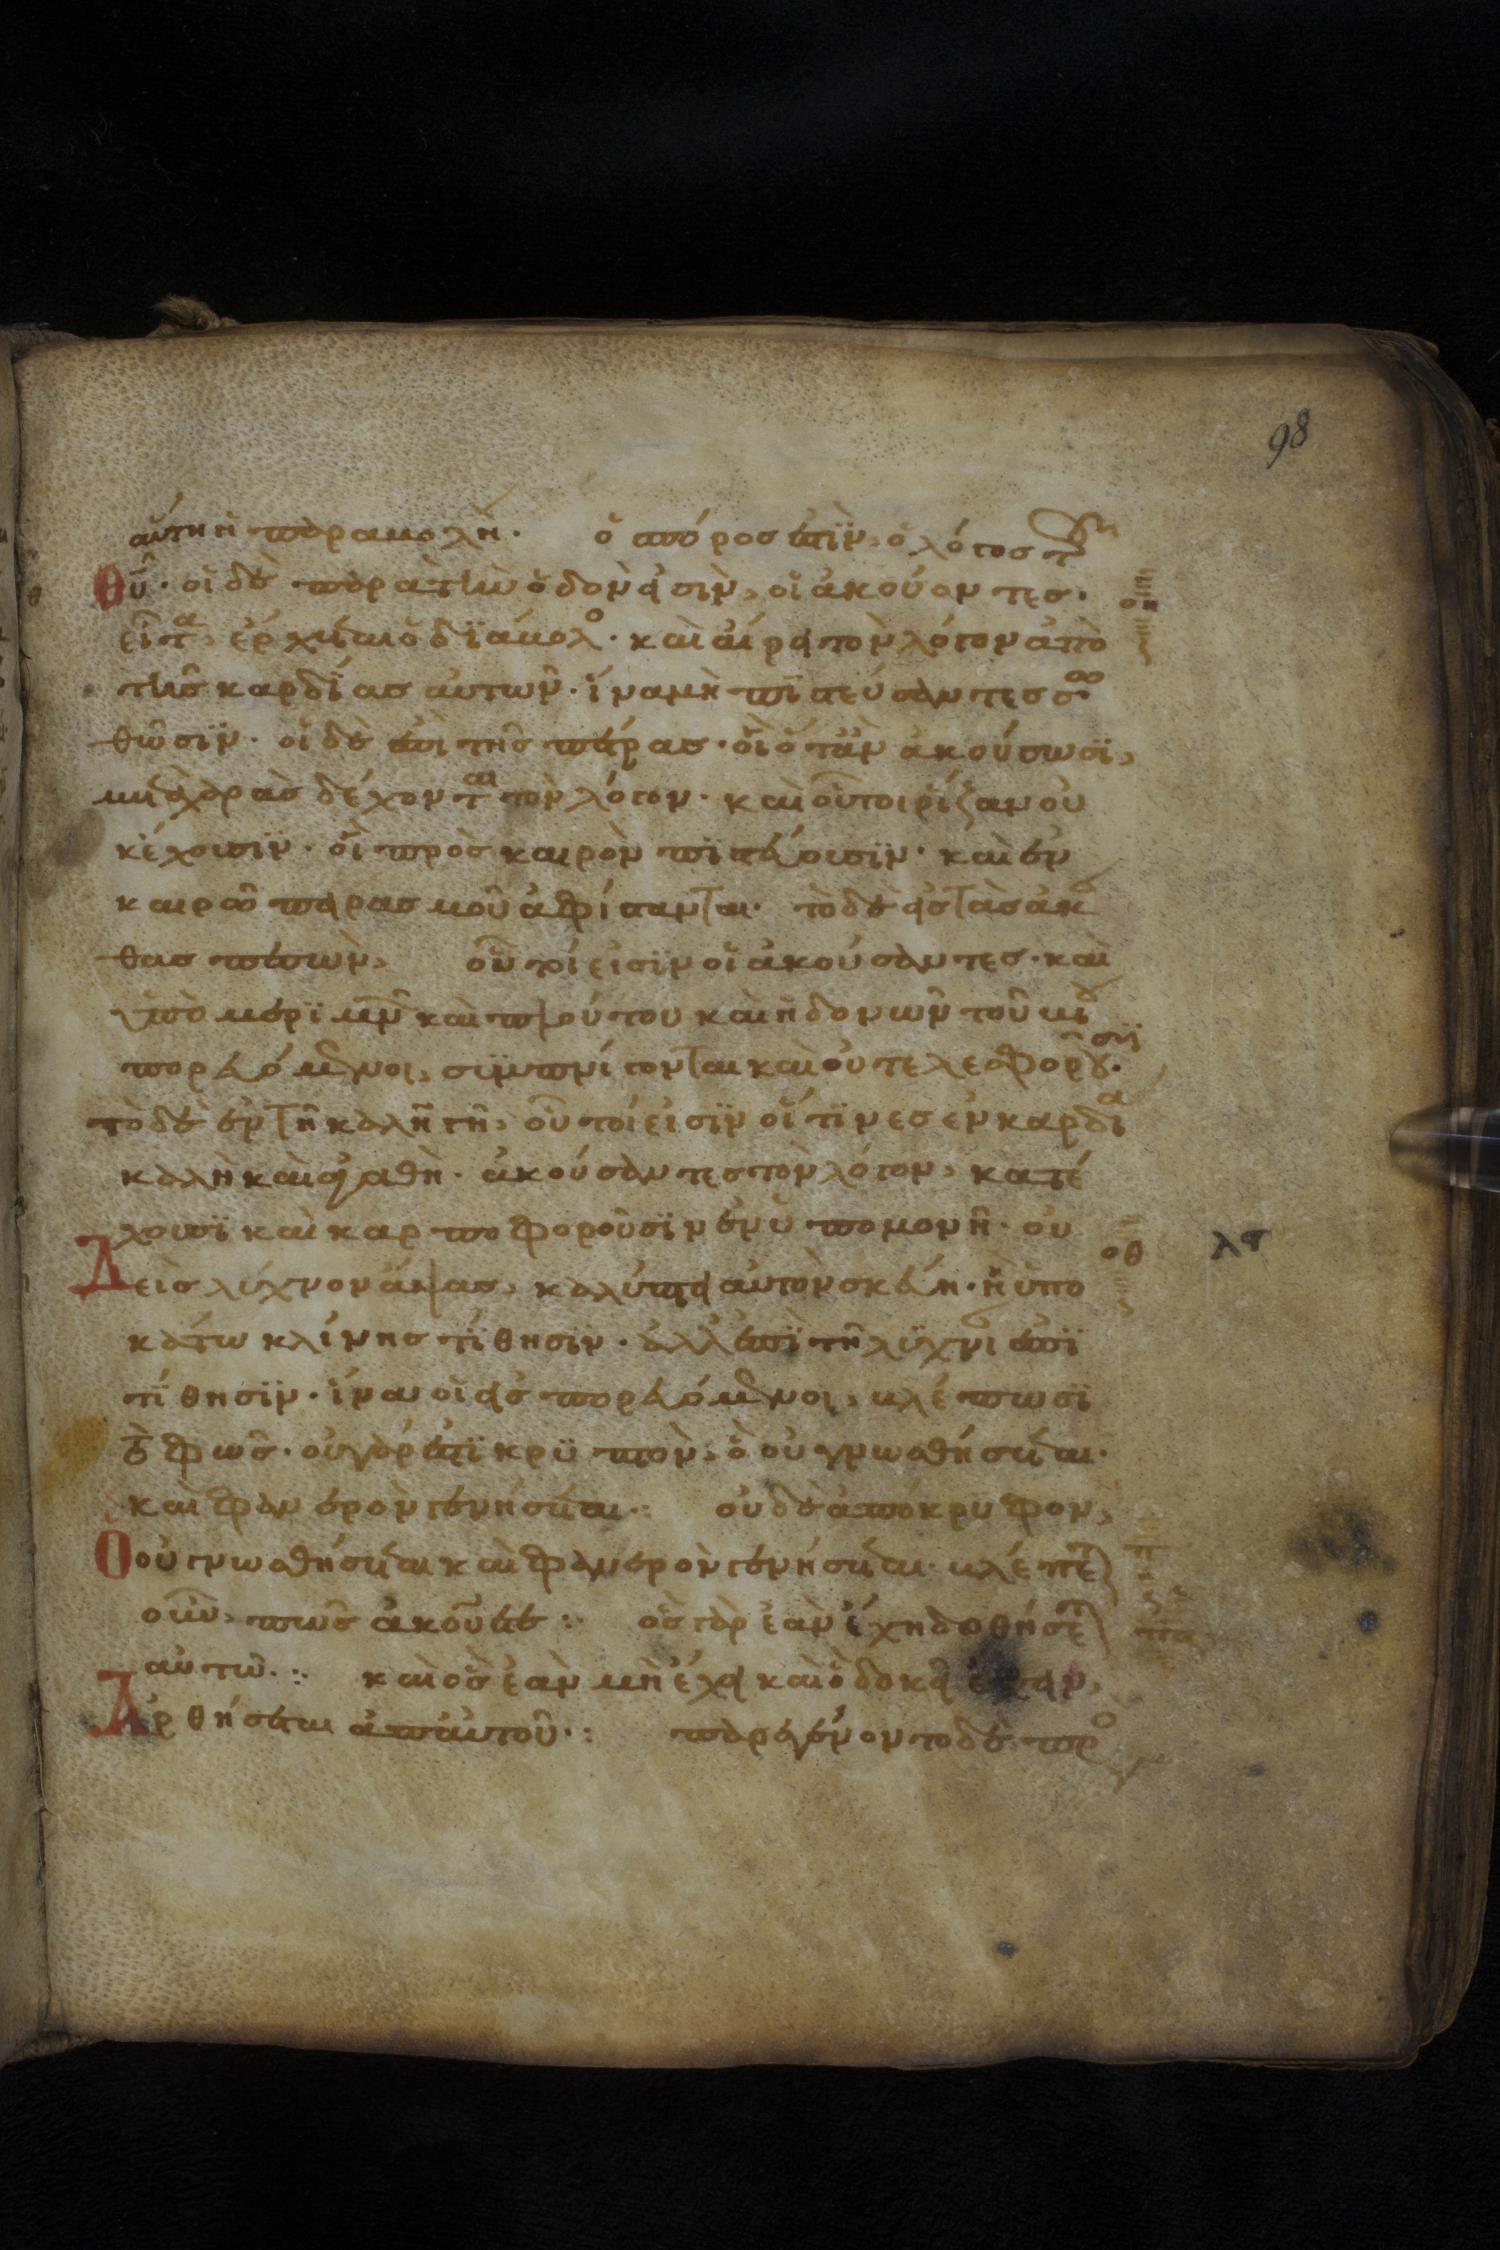 98
αὕτη ἡ παραβολή· ὁ σπόρος ἐστὶν, ὁ λόγος τοῦ
θυ̅· οἱ δὲ παρὰ τὴν ὁδὸν εἰσὶν, οἱ ἀκούοντες·
εἶτα, ἔρχεται ὁ διάβολο· καὶ αἴρει τὸν λόγον ἀπὸ
τῆς καρδίας αὐτῶν· ἵνα μὴ πιστεύσαντες σω
θῶσιν· οἱ δὲ ἐπὶ τῆς πέτρας· οἳ ὅταν ἀκούσωσι,
μετὰ χαρὰς δέχονται τὸν λόγον· καὶ οὗτοι ῥίζαν οὐ
κ ἔχουσιν· οἳ πρὸς καιρὸν πιστεύουσιν· καὶ ἐν
καιρῶ πειρασμοῦ ἀφίστανται· τὸ δὲ εἰς τὰς ἀκάν
θας πεσὼν, οὗτοί εἰσιν οἱ ἀκούσαντες· καὶ
ὑπὸ μεριμνῶν καὶ πλούτου καὶ ἡδονῶν τοῦ βίου
πορευόμενοι, συμπνίγονται καὶ οὐ τελεσφοροῦσιν·
τὸ δὲ ἐν τῆ καλῆ γῆ, οὗτοί εἰσιν οἵτινες ἐν καρδία
καλὴ καὶ ἀγαθὴ· ἀκούσαντες τὸν λόγον, κατέ
χουσι καὶ καρποφοροῦσιν ἐν ὑπομονῆ· οὐ
Δεὶς λύχνον ἅψας, καλύπτει αὐτὸν σκεύει· ἢ ὑπο
κάτω κλίνης τίθησιν· ἀλλ ἐπὶ τῆ λυχνι ἐπι
τίθησιν· ἵνα οἱ εἰσπορευόμενοι, βλέπωσι
τὸ φῶς· οὐ γάρ ἐστι κρυπτὸν, ὃ οὐ γνωσθήσεται·
καὶ φανερὸν γενήσεται·: οὐδὲ ἀπόκρυφον,
Ὃ οὐ γνωσθήσεται καὶ φανερὸν γενήσεται· βλέπετε
οὖν, πῶς ἀκούετε·: ὃς γὰρ ἐὰν ἔχη δοθήσεται
αὐτῶ·: καὶ ὃς ἐὰν μὴ ἔχει καὶ ὃ δοκεῖ ἔχειν,
Ἀρθήσεται ἀπ αὐτοῦ·: παρεγένοντο δὲ πρὸ
οη
οθ
λς
πα